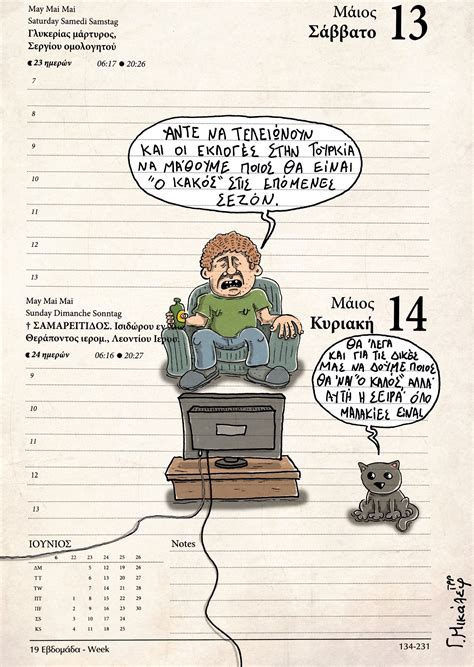 May Mai Mai
Saturday Samedi Samstag
Γλυκερίας μάρτυρος,
Σεργίου ομολογητού
23 ημερών 06:17 ● 20:26
Μάιος
Σάββατο 13
7
8
9
10
11
12
13
ΆΝΤΕ ΝΑ ΤΕΛΕΙΏΝΟΥΝ
ΚΑΙ ΟΙ ΕΚΛΟΓΈΣ ΣΤΗΝ ΤΟΥΡΚΊΑ
ΝΑ ΜΆΘΟΥΜΕ ΠΟΙΟΣ ΘΑ ΕΊΝΑΙ
"Ο ΚΑΚΌΣ" ΣΤΙΣ ΕΠΌΜΕΝΕΣ
ΣΕΖΌΝ.
May Mai Mai
Sunday Dimanche Sonntag
† ΣΑΜΑΡΕΙΤΙΔΟΣ. Ισιδώρου εν
Θεράποντος ιερομ., Λεοντίου Ιεροσ.
24 ημερών 06:16 ● 20:27
Μάιος
Κυριακή 14
9
10
11
12
13
ΘΑ 'ΛΕΓΑ
ΚΑΙ ΓΙΑ ΤΙΣ ΔΙΚΈΣ
ΜΑΣ ΝΑ ΔΟΎΜΕ ΠΟΙΟΣ
ΘΑ 'ΝΑΙ "Ο ΚΑΛΌΣ", ΑΛΛΆ
ΑΥΤΉ Η ΣΕΙΡΆ ΌΛΟ
ΜΑΛΑΚΊΕΣ ΕΊΝΑΙ
ΙΟΥΝΙΟΣ
6 22 23 24 25 26
ΔΜ 5 12 19 26
ΤΤ 6 13 20 27
ΤW 7 14 21 28
ΠΤ 1 8 15 22 29
ΠF 2 9 16 23 30
ΣS 3 10 17 24
ΚS 4 11 18 25
Notes
19 Εβδομάδα - Week
134-231
Γ. Μικάλεφ